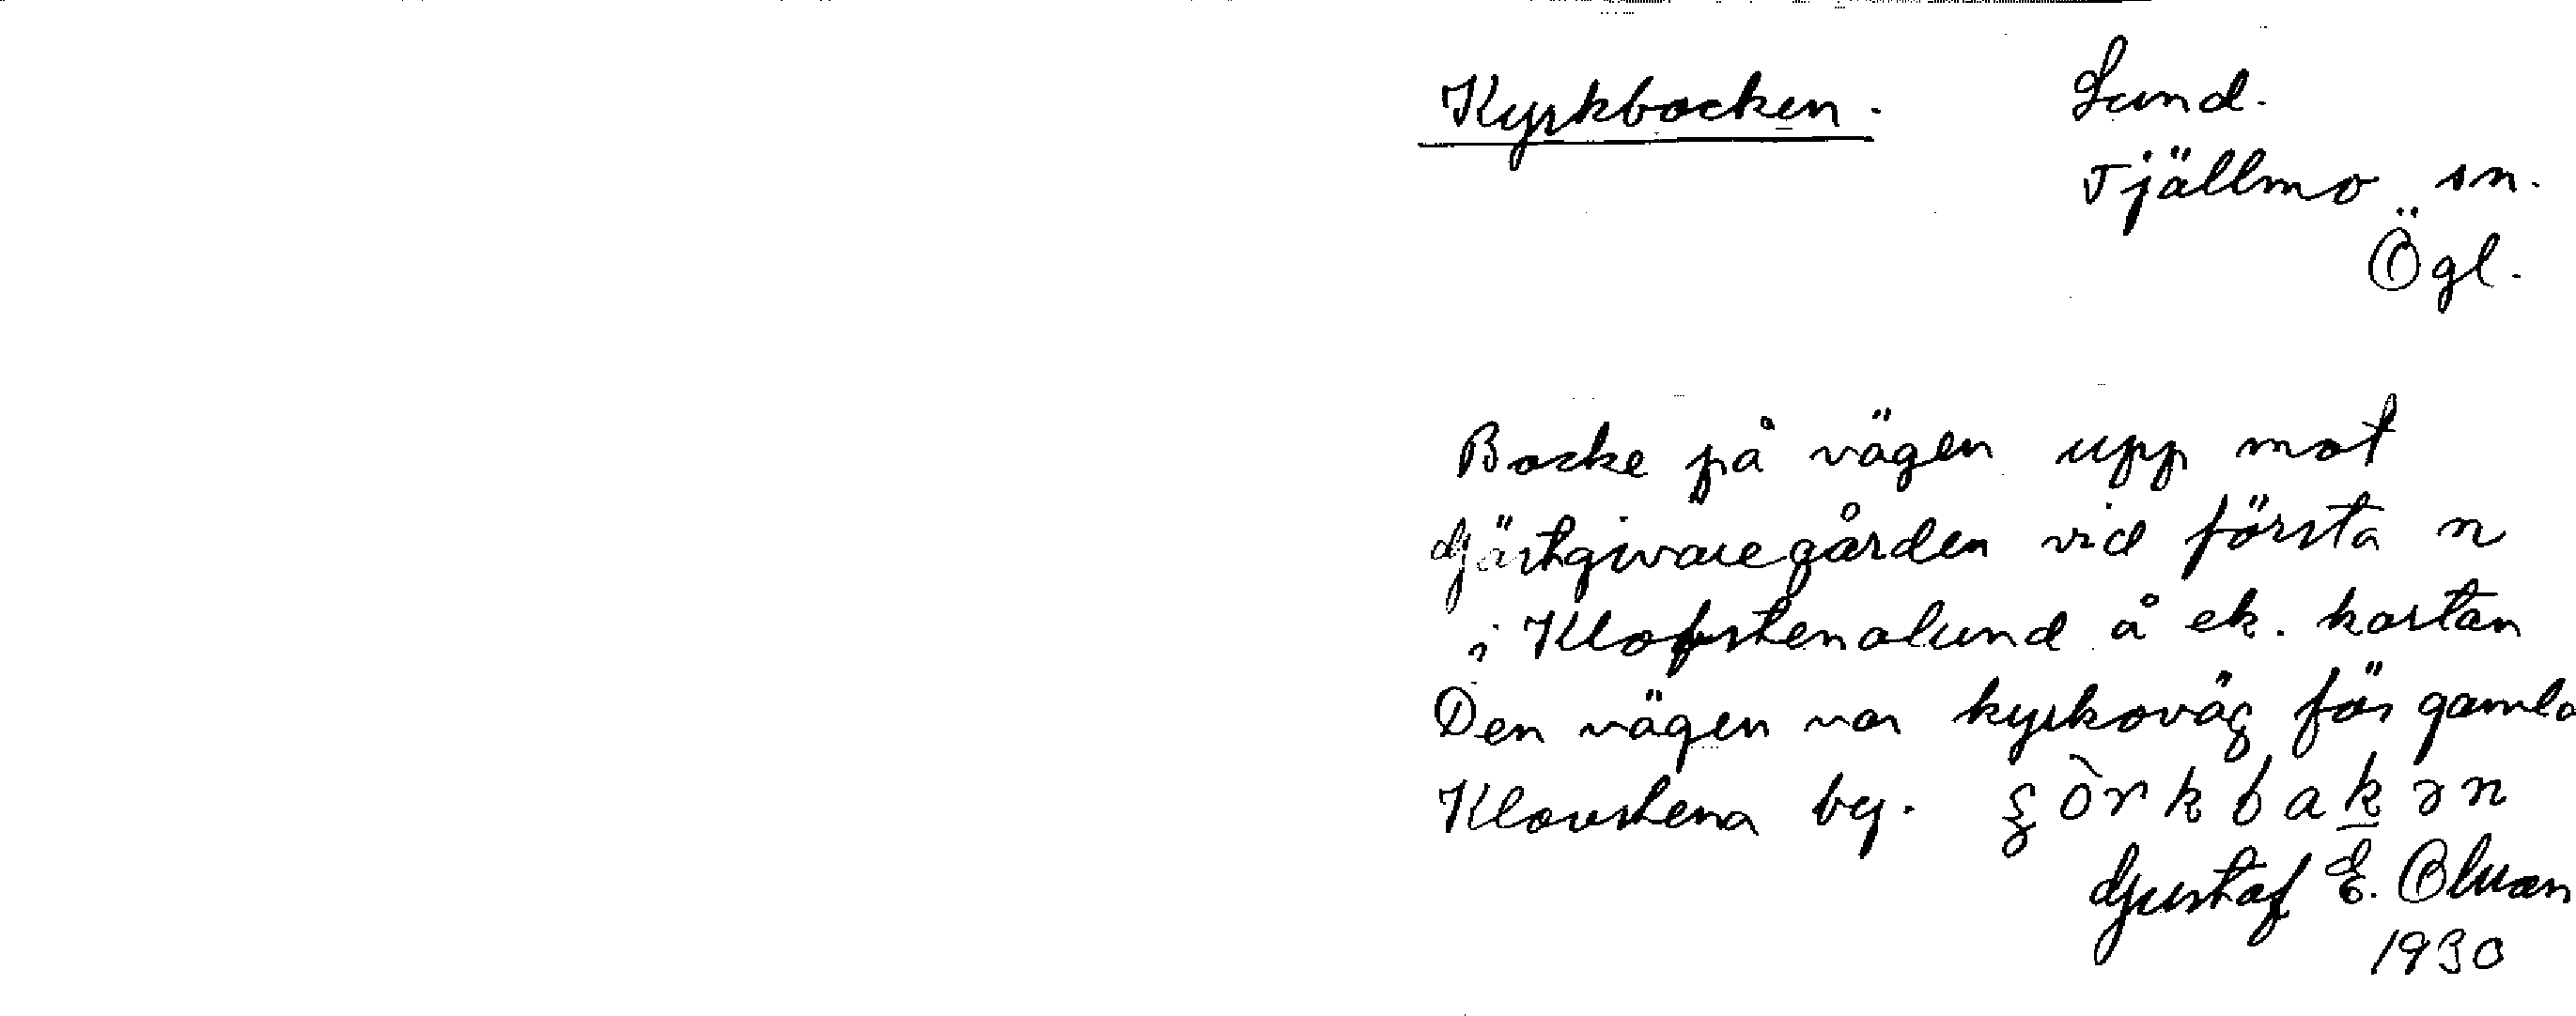 Kyrkbocken. Lund.
Tjällmo sn.
Ögl.
Backe på vägen upp mot
Gästgivaregården vid första n
i Klofstenalund å ek. kartan
Den vägen var kyrkoväg för gamla
Klovstena by.
Gustaf E. Olsson
1930